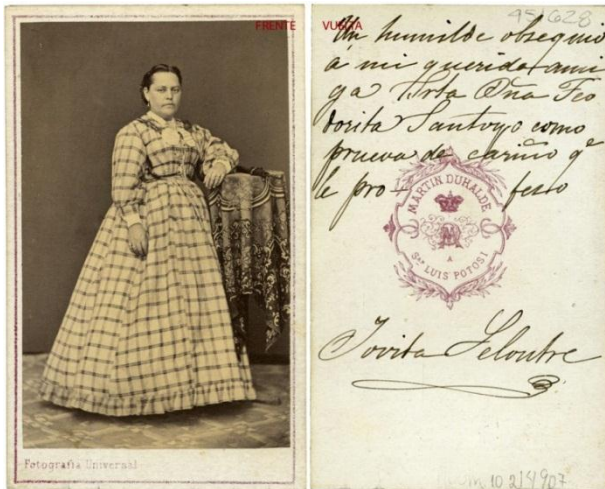 FRENTE
Fotografía Universal
VUELTA
451628
Un humilde obsequio
á mi querida ami
ga Srta Dña Teo
dorita Santoyo como
prueva de cariño qe
le pro- festo
MARTIN DUHALDE
A
Sn LUIS POTOSI
Jovita Leloutre
10 2/5/907